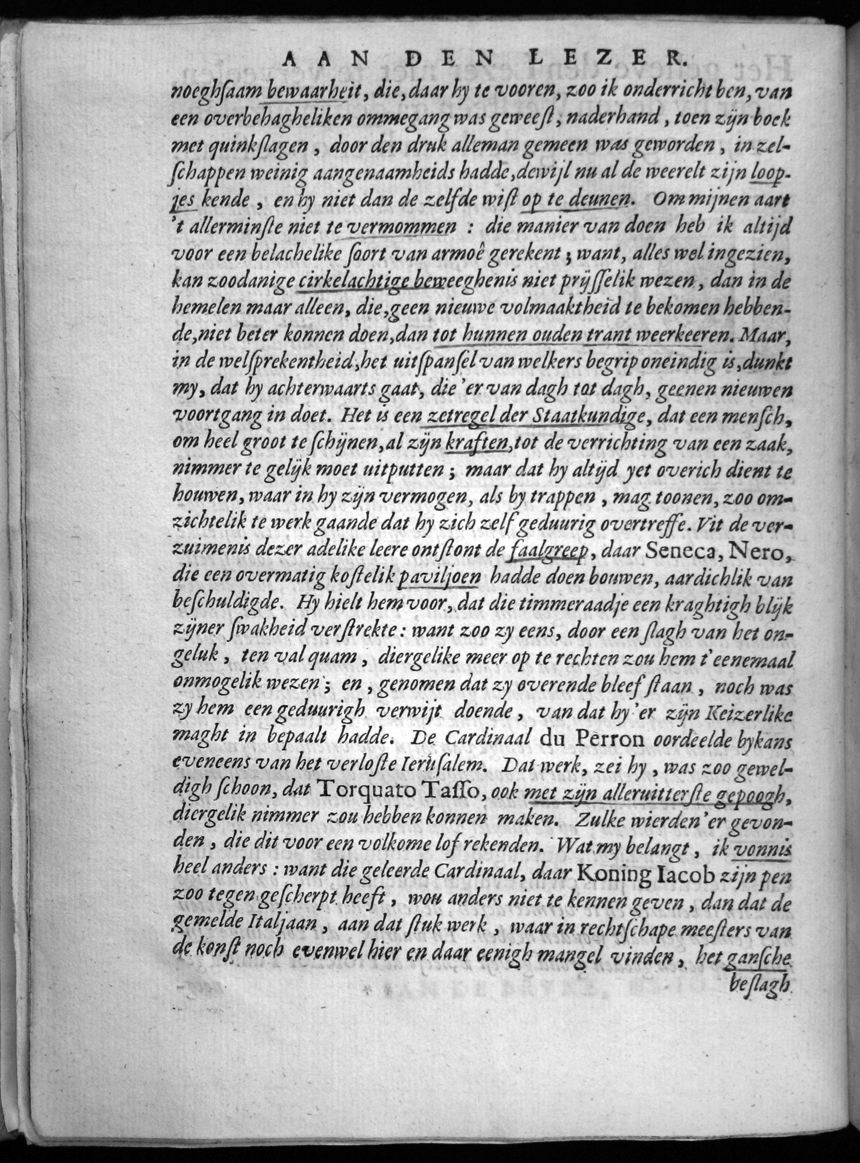 AAN DEN LEZER.
noeghſaam bewaarheit, die, daar hy te vooren, zoo ik onderricht ben, van
een overbehagheliken ommegang was geweeſt, naderhand, toen zijn boek
met quinkſlagen, door den druk alleman gemeen was geworden, in zel-
ſchappen weinig aangenaamheids hadde, dewijl nu al de weerelt zijn loop-
jes kende, en hy niet dan de zelfde wiſt op te deunen. Om mijnen aart
't allerminſte niet te vermommen : die manier van doen heb ik altijd
voor een belachelike ſoort van armoê gerekent; want, alles wel ingezien,
kan zoodanige cirkelachtige beweeghenis niet prijſſelik wezen, dan in de
hemelen maar alleen, die, geen nieuwe volmaaktheid te bekomen hebben-
de, niet beter konnen doen, dan tot hunnen ouden trant weerkeeren. Maar,
in de welſprekentheid, het uitſpanſel van welkers begrip oneindig is, dunkt
my, dat hy achterwaarts gaat, die 'er van dagh tot dagh, geenen nieuwen
voortgang in doet. Het is een zetregel der Staatkundige, dat een menſch,
om heel groot te ſchijnen, al zijn kraften, tot de verrichting van een zaak,
nimmer te gelijk moet uitputten; maar dat hy altijd yet overich dient te
houwen, waar in hy zijn vermogen, als by trappen, mag toonen, zoo om-
zichtelik te werk gaande dat hy zich zelf geduurig overtreffe. Vit de ver-
zuimenis dezer adelike leere ontſtont de faalgreep, daar Seneca, Nero,
die een overmatig koſtelik paviljoen hadde doen bouwen, aardichlik van
beſchuldigde. Hy hielt hem voor, dat die timmeraadje een kraghtigh blijk
zijner ſwakheid verſtrekte: want zoo zy eens, door een ſlagh van het on-
geluk, ten val quam, diergelike meer op te rechten zou hem t'eenemaal
onmogelik wezen; en, genomen dat zy overende bleef ſtaan, noch was
zy hem een geduurigh verwijt doende, van dat hy 'er zijn Keizerlike
maght in bepaalt hadde. De Cardinaal du Perron oordeelde bykans
eveneens van het verloſte Ieruſalem. Dat werk, zei hy, was zoo gewel-
digh ſchoon, dat Torquato Taſſo, ook met zijn alleruitterſte gepoogh,
diergelik nimmer zou hebben konnen maken. Zulke wierden 'er gevon-
den, die dit voor een volkome lof rekenden. Wat my belangt, ik vonnis
heel anders : want die geleerde Cardinaal, daar Koning Iacob zijn pen
zoo tegen geſcherpt heeft, wou anders niet te kennen geven, dan dat de
gemelde Italjaan, aan dat ſtuk werk, waar in rechtſchape meeſters van
de konſt noch evenwel hier en daar eenigh mangel vinden, het ganſche
beſlagh